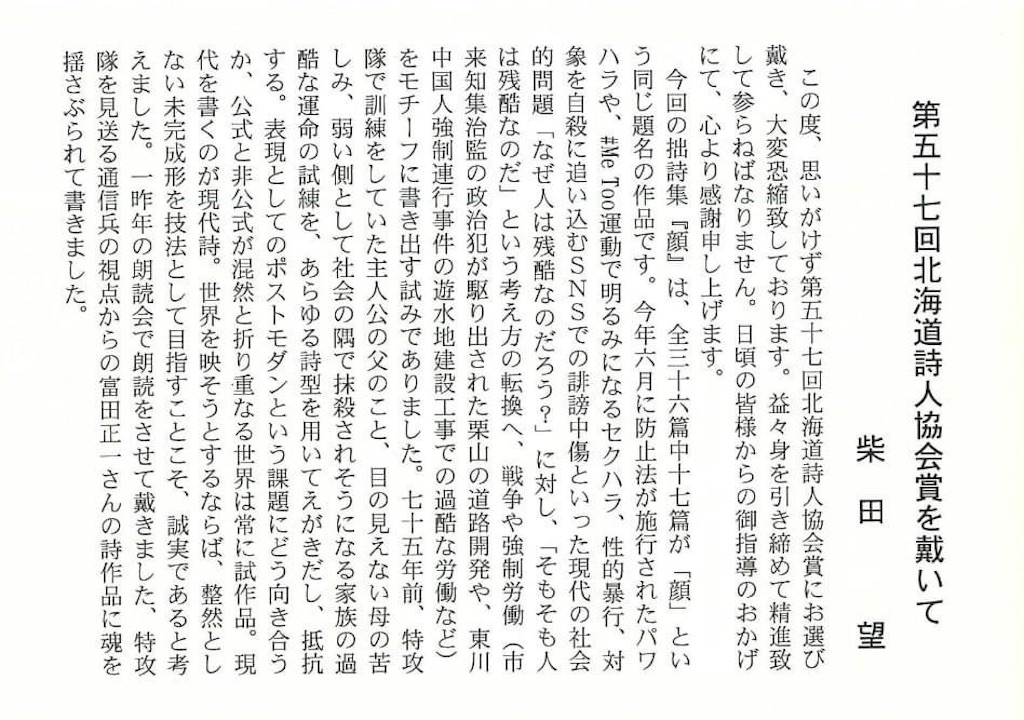 第五十七回北海道詩人協会賞を戴いて
柴田 望
この度、思いがけず第五十七回北海道詩人協会賞にお選び
戴き、大変恐縮致しております。益々身を引き締めて精進致
して参らねばなりません。日頃の皆様からの御指導のおかげ
にて、心より感謝申し上げます。
今回の拙詩集『顔』は、全三十六篇中十七篇が「顔」とい
う同じ題名の作品です。今年六月に防止法が施行されたパワ
ハラや、#Me Too運動で明るみになるセクハラ、性的暴行、対
象を自殺に追い込むSNSでの誹謗中傷といった現代の社会
的問題「なぜ人は残酷なのだろう?」に対し、「そもそも人
は残酷なのだ」という考え方の転換へ、戦争や強制労働（市
来知集治監の政治犯が駆り出された栗山の道路開発や、東川
中国人強制連行事件の遊水地建設工事での過酷な労働など）
をモチーフに書き出す試みでありました。七十五年前、特攻
隊で訓練をしていた主人公の父のこと、目の見えない母の苦
しみ、弱い側として社会の隅で抹殺されそうになる家族の過
酷な運命の試練を、あらゆる詩型を用いてえがきだし、抵抗
する。表現としてのポストモダンという課題にどう向き合う
か、公式と非公式が混然と折り重なる世界は常に試作品。現
代を書くのが現代詩。世界を映そうとするならば、整然とし
ない未完成形を技法として目指すことこそ、誠実であると考
えました。一昨年の朗読会で朗読をさせて戴きました、特攻
隊を見送る通信兵の視点からの富田正一さんの詩作品に魂を
揺さぶられて書きました。